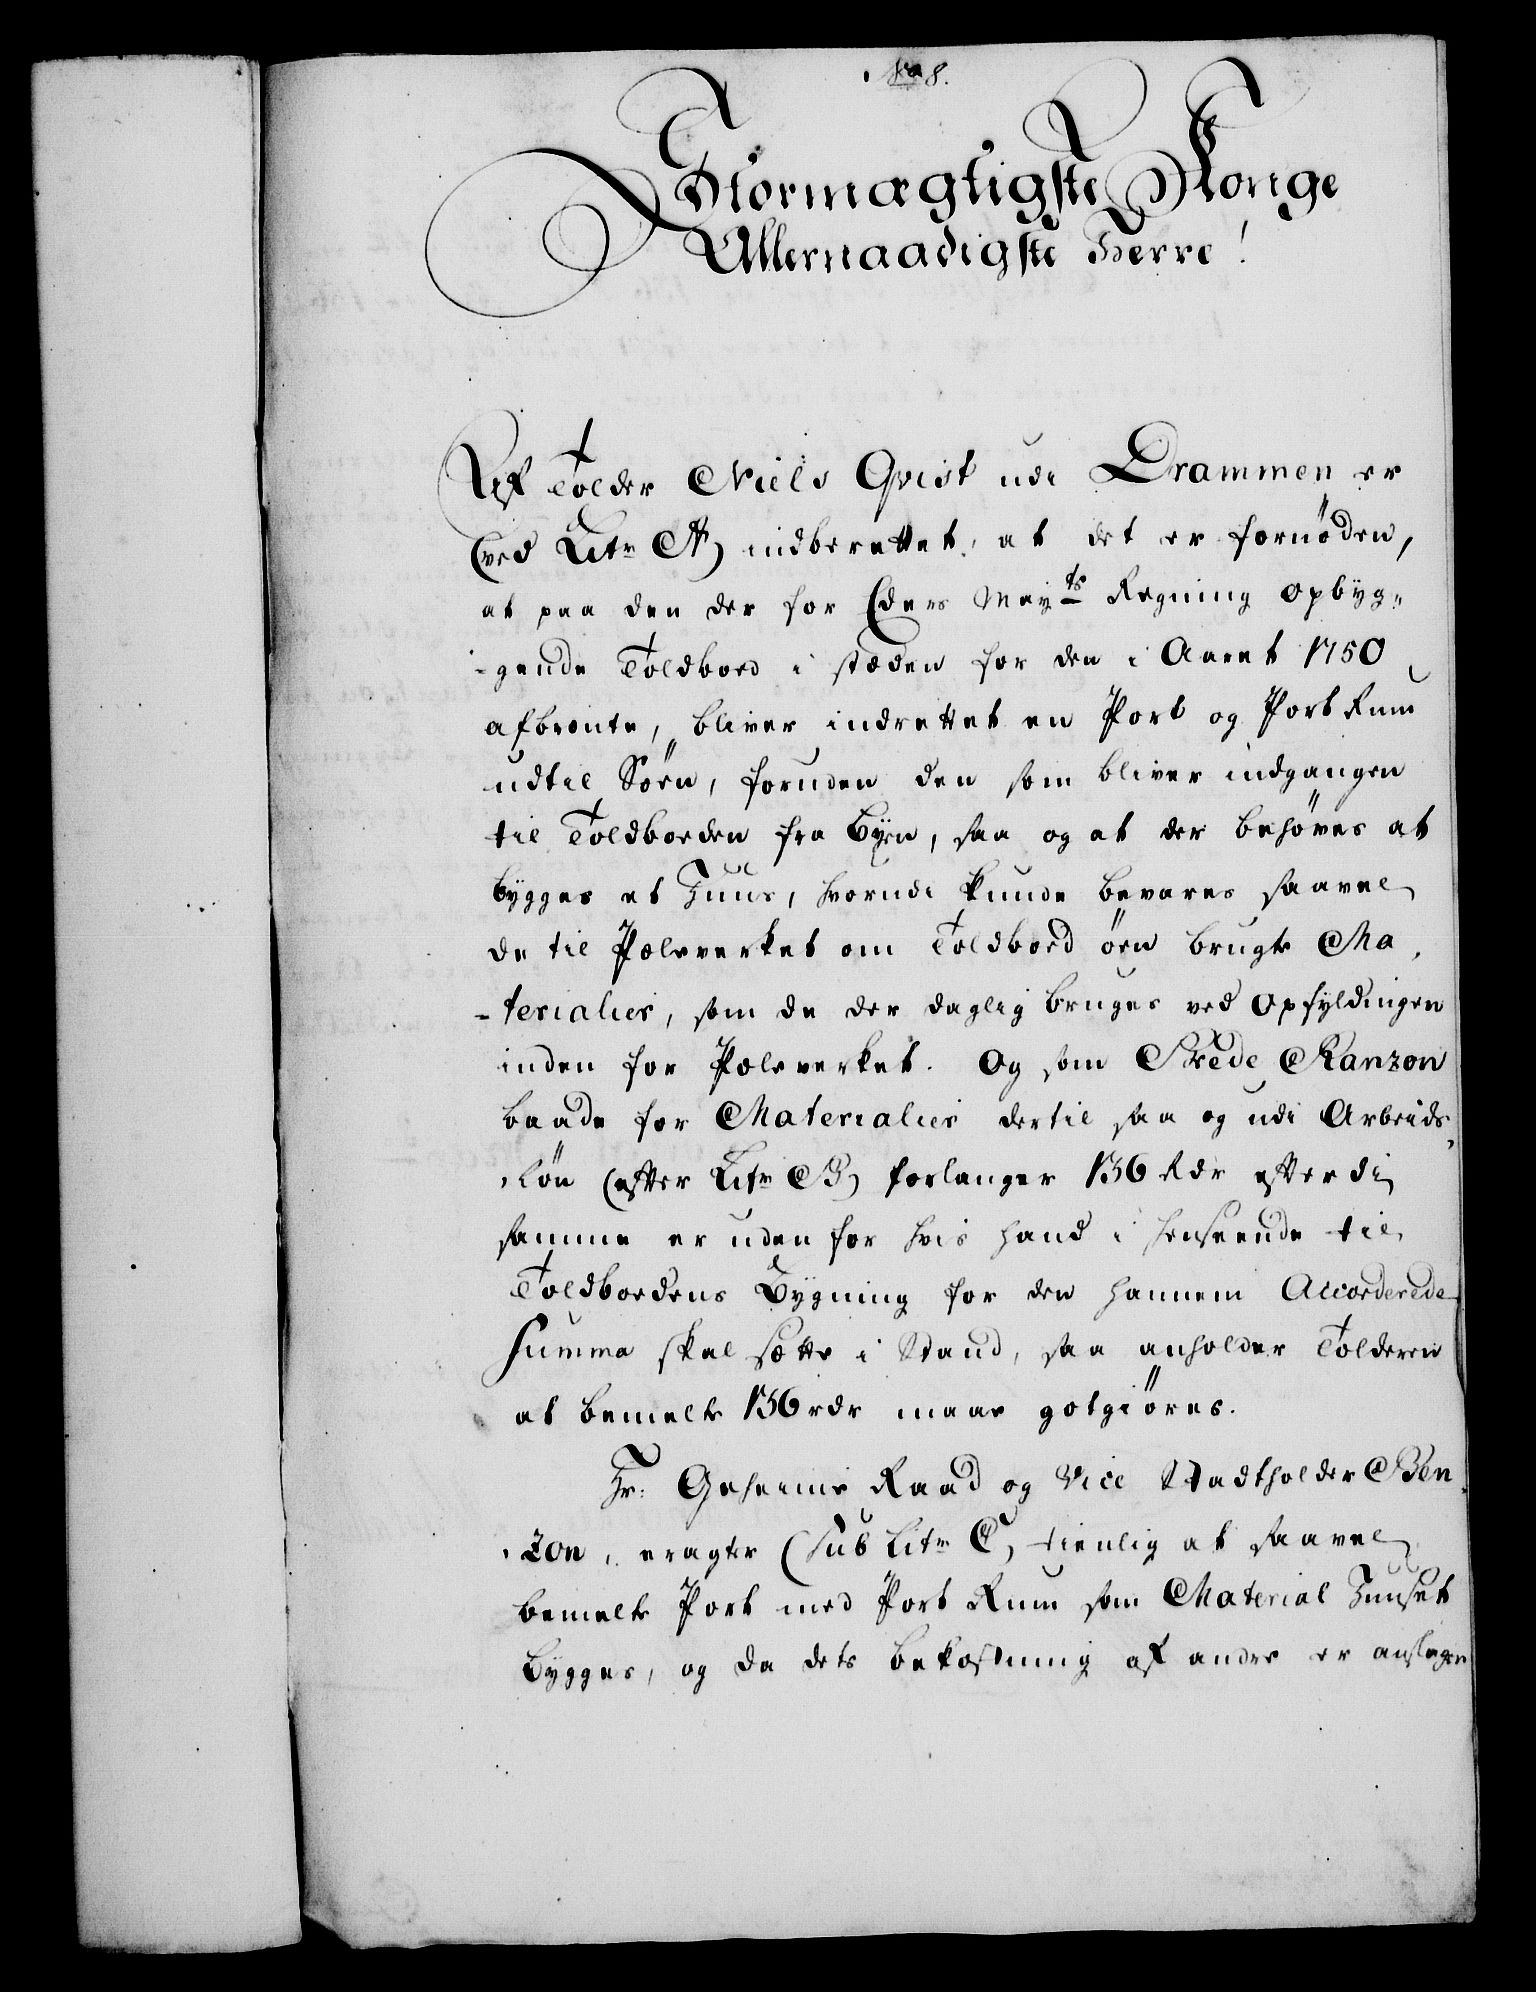 No 8.
Stormægtigste Konge
Allernaadigste Herre!
Af Tolder Niels Qvist udi Drammen er
(ved Litr A) indberettet, at det er fornöden,
at paa den der for Eders Mayts Regning opbyg„
-gende Toldboed i stæden for den i Aaret 1750
afbrente, bliver indrettet en Port og Port Rum
udtil Söen, foruden den som bliver indgangen
til Toldboeden fra Byen, saa og at der behöves at
bygges et Huus, hvorudi kunde bevares saavel
de til Pæleverket om Toldboed öen brugte Ma,
-terialier, som de der daglig bruges ved Opfyldingen
inden for Pæleverket. Og som Frede Ranzon
baade for Materialier dertil saa og udi Arbeids,
,lön (efter Litr B) forlanger 136 Rdr efterdi
samme er uden for hvis hand i henseende til
Toldboedens Bygning for den hannem Accorderede
Summa skal sætte i Stand, saa anholder Tolderen
at bemelte 136 rdr maae gotgiöres.
Hr. Geheime Raad og Vice Stadtholder Ben,
,zon, eragter (sub Litr C) tienlig at saavel
bemelte Port med Port Rum som Material Huuset
bygges, og da dets bekostning af andre er anslagen